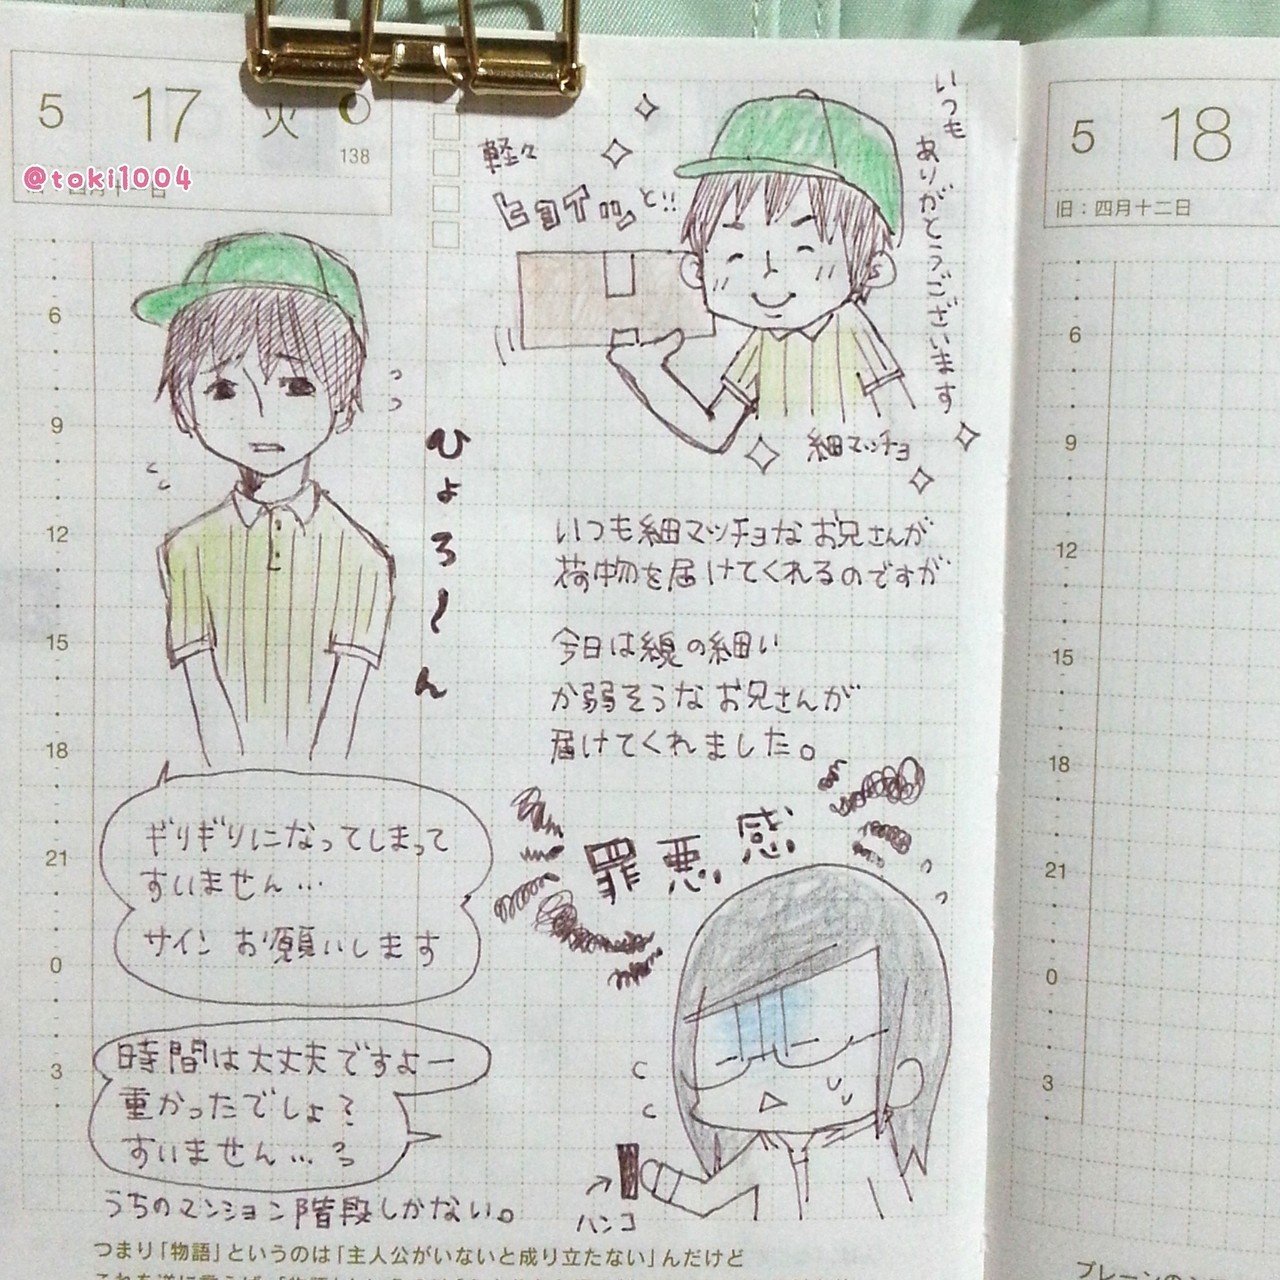 5 17 火
138
@toki1004
軽々
ヒョイッと!!
いつも
ありがとうございます
細マッチョ
いつも細マッチョなお兄さんが
荷物を届けてくれるのですが
今日は線の細い
か弱そうなお兄さんが
届けてくれました。
ひょろ〜ん
ギリギリになってしまって
すいません…
サインお願いします
罪悪感
時間は大丈夫ですよー
重かったでしょ?
すいません…
うちのマンション階段しかない。
ハンコ
つまり「物語」というのは「主人公がいないと成り立たない」んだけど
6
9
12
15
18
21
0
3
5 18
旧：四月十二日
6
9
12
15
18
21
0
3
プレーンの